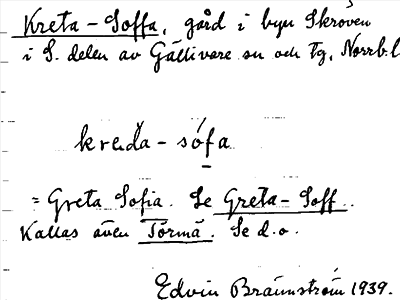 Kreta-Soffa, gård i byn Skröven
i S. delen av Gällivare sn och tg, Norrb. l
kreda - sófa
= Greta Sofia. Se Greta-Soff.
Kallas även Törmä. Se d.o.
Edvin Brännström 1939.